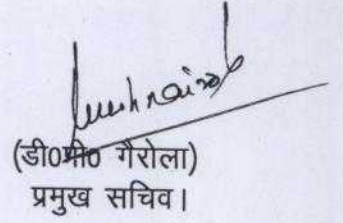 (डी०पी० गैरोला)
प्रमुख सचिव।